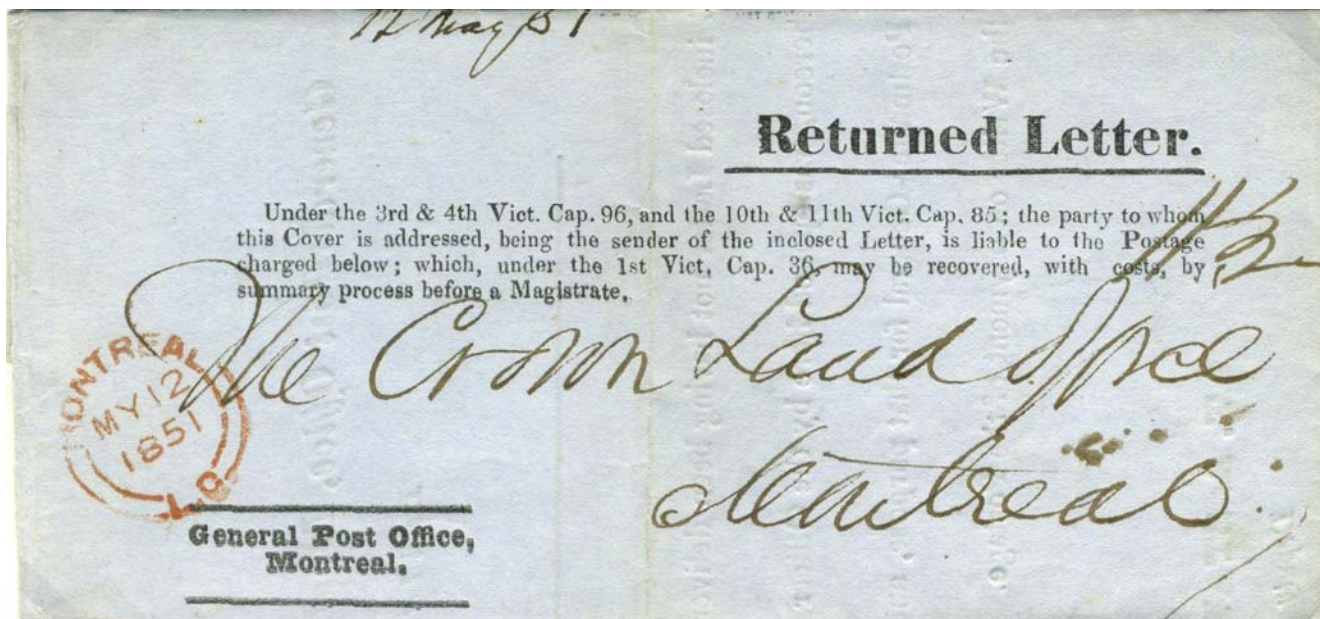 12 May 51
Returned Letter.
Under the 3rd & 4th Vict. Cap. 96, and the 10th & 11th Vict. Cap. 85; the party to whom
this Cover is addressed, being the sender of the inclosed Letter, is liable to the Postage
charged below; which, under the 1st Vict. Cap. 36, may be recovered, with costs, by
summary process before a Magistrate.
The Crown Land Office
Montreal
MONTREAL
MY 12
1851
L.C
General Post Office,
Montreal.